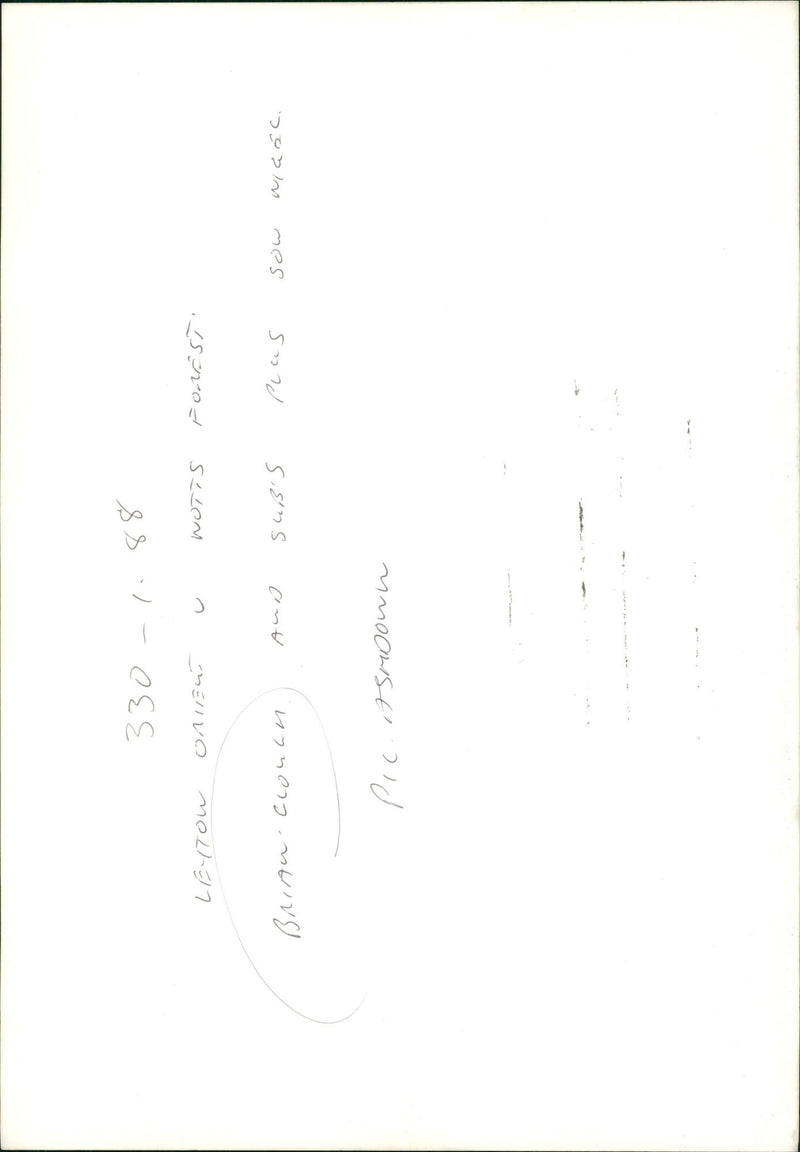 330-1.88
LEYTON ORIENT V NOTTS FOREST.
BRIAN CLOUGH. AND SUB'S PLUS SON NIGEL.
PIC. ASHDOWN